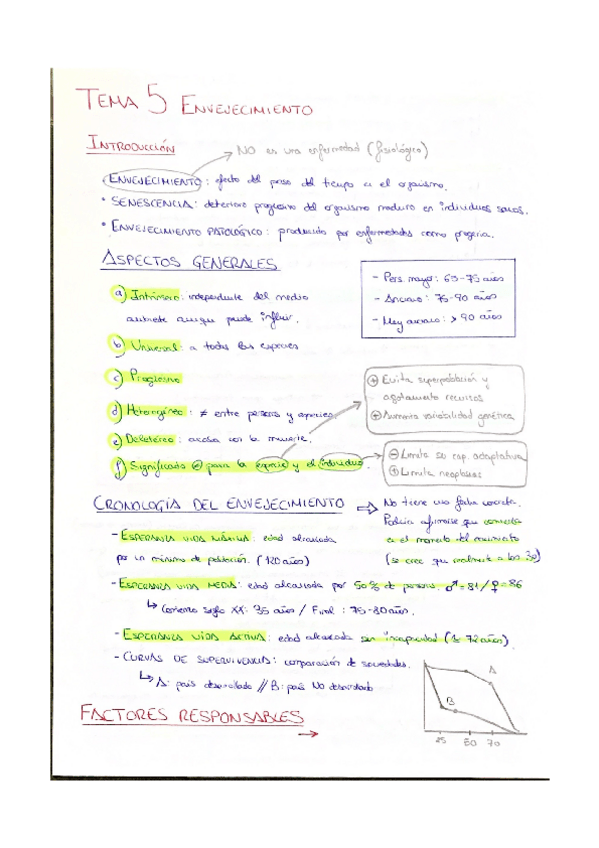 TEMA 5 ENVEJECIMIENTO
INTRODUCCIÓN
→ NO es una enfermedad (fisiológico)
ENVEJECIMIENTO: efecto del paso del tiempo en el organismo.
* SENESCENCIA: deterioro progresivo del organismo maduro en individuos sanos.
* ENVEJECIMIENTO PATOLÓGICO: producido por enfermedades como progeria.
ASPECTOS GENERALES
- Pers. mayor: 65-75 años
- Anciano: 75-90 años
- Muy anciano: > 90 años
a) Intrínseco: independiente del medio
ambiente aunque puede influir.
b) Universal: a todas las especies
c) Progresivo
d) Heterogéneo: ≠ entre personas y especies
e) Deletéreo: acaba con la muerte.
f) Significado ⊕ para la especie y el individuo.
⊕ Evita superpoblación y
agotamiento recursos
⊕ Aumenta variabilidad genética
⊖ Limita su cap. adaptativa
⊕ Limita neoplasias
CRONOLOGÍA DEL ENVEJECIMIENTO ⇨ No tiene una fecha concreta.
Podría afirmarse que comienza
en el momento del nacimiento
(se cree que realmente a los 30)
- ESPERANZA VIDA MÁXIMA: edad alcanzada
por un mínimo de población. (120 años)
- ESPERANZA VIDA MEDIA: edad alcanzada por 50% de personas. ♂=81/♀=86
↳ Comienzo siglo XX: 35 años / Final: 75-80 años.
- ESPERANZA VIDA ACTIVA: edad alcanzada sin incapacidad (≈ 72 años).
- CURVAS DE SUPERVIVENCIA: comparación de sociedades.
↳ A: país desarrollado // B: país No desarrollado
A
B
25 50 70
FACTORES RESPONSABLES
→